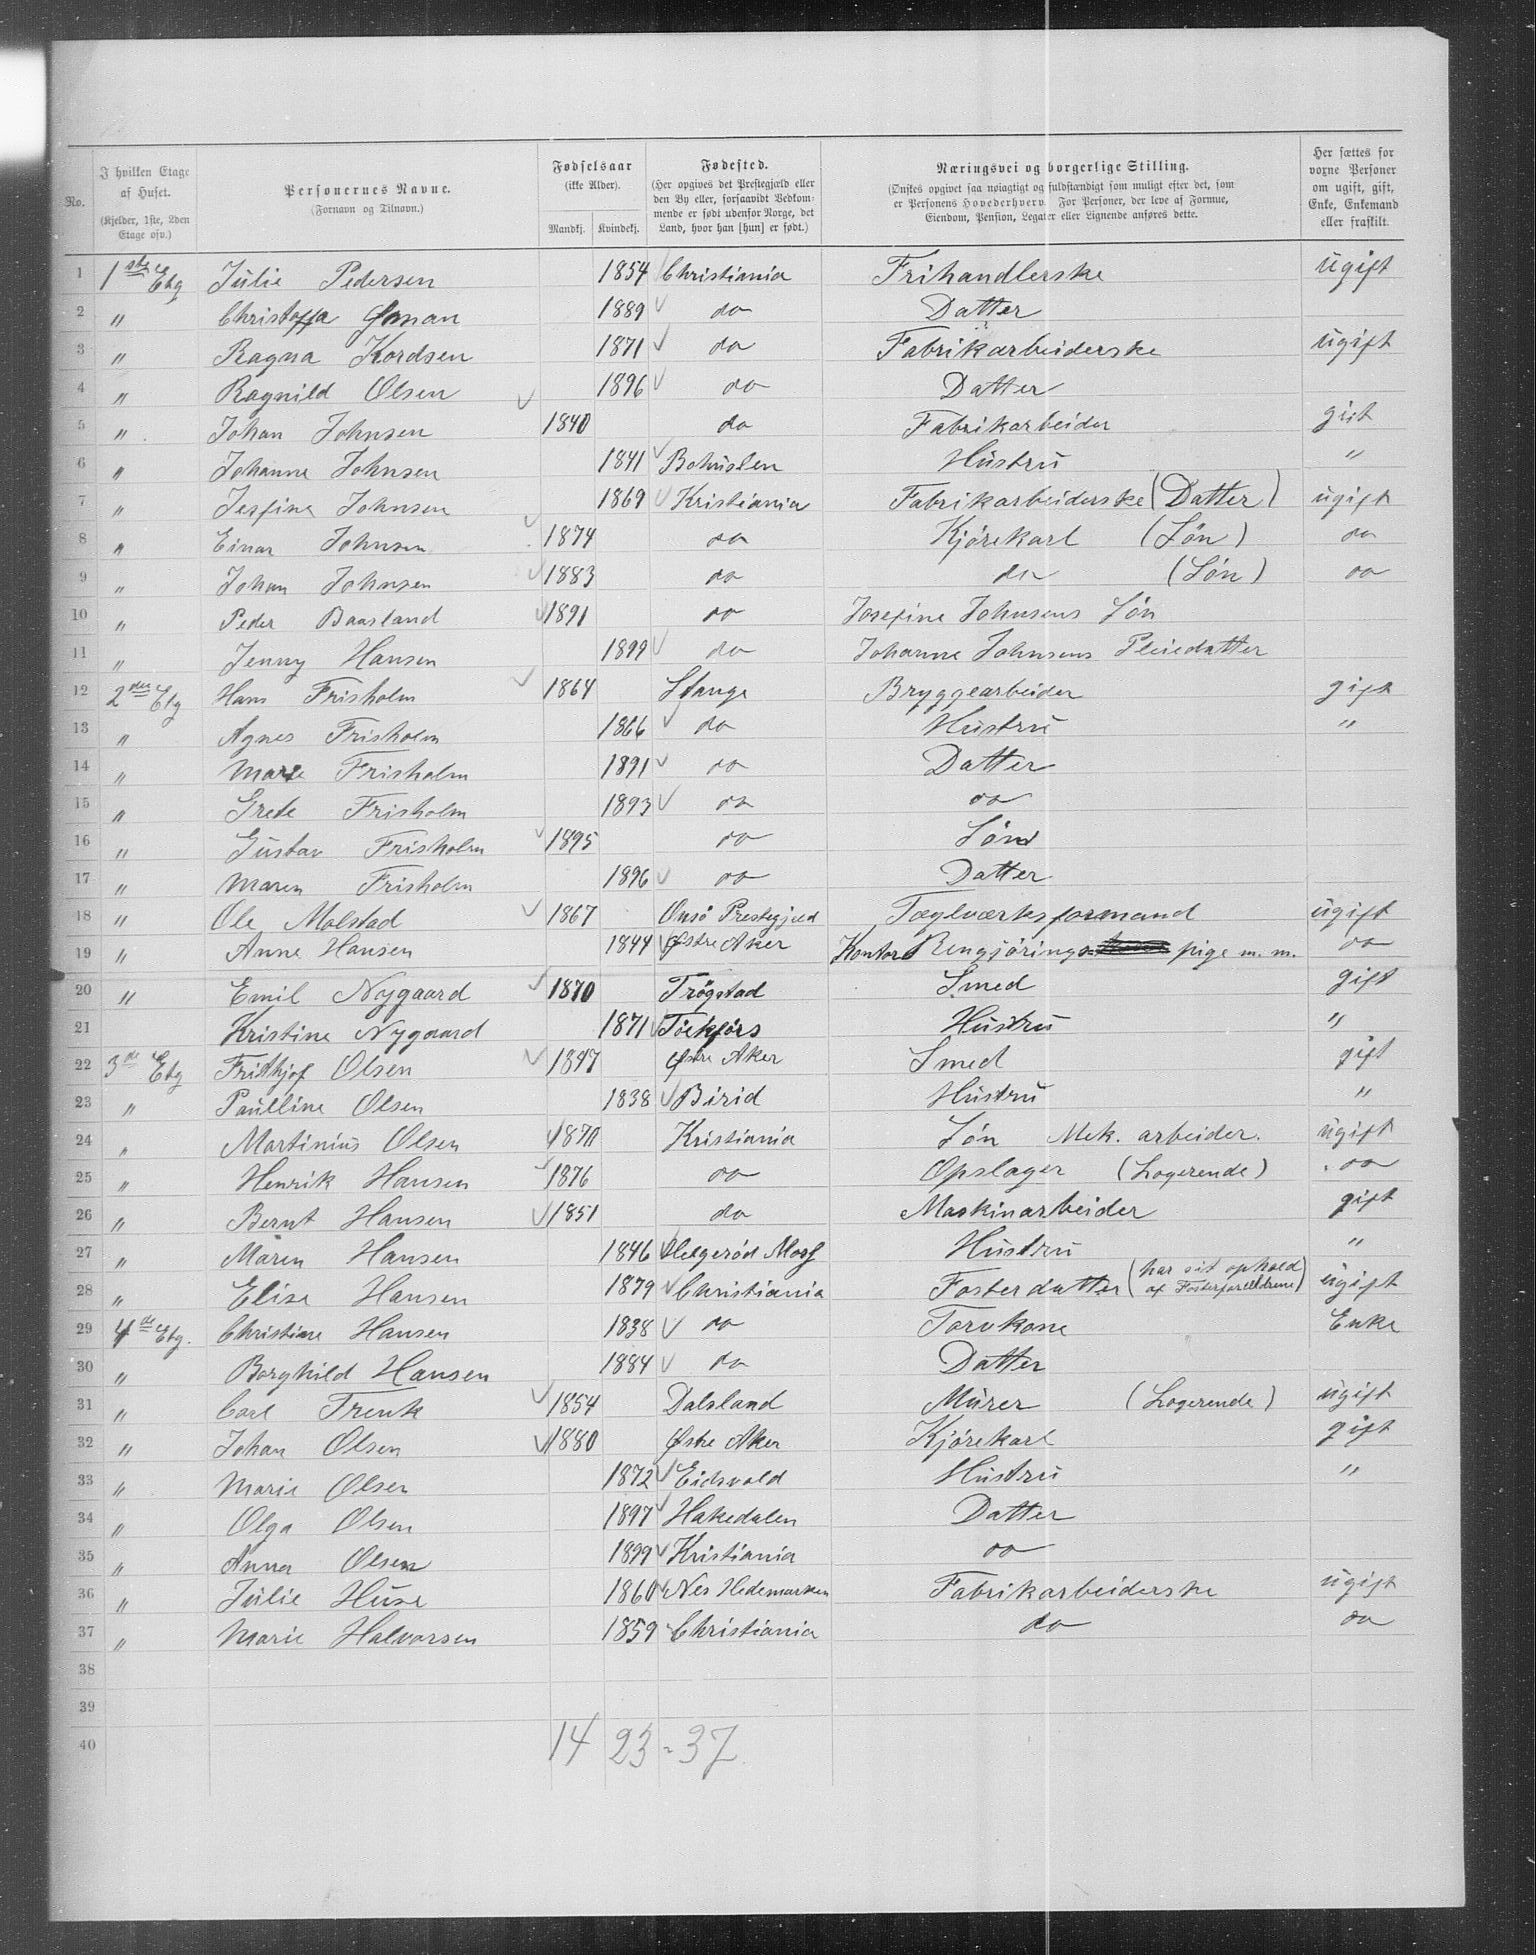 No.
I hvilken Etage af Huset. (Kjelder, 1ste, 2den Etage osv.)
Personernes Navne. (Fornavn og Tilnavn.)
Fødselsaar (ikke Alder). Mandkj. Kvindekj.
Fødested. (Her opgives det Prestegjæld eller den By eller, forsaavidt Vedkommende er født udenfor Norge, det Land, hvor han [hun] er født.)
Næringsvei og borgerlige Stilling. (Ønskes opgivet saa nøiagtigt og fuldstændigt som muligt efter det, som er Personens Hovederhverv. For Personer, der leve af Formue, Eiendom, Pension, Legater eller Lignende anføres dette.
Her sættes for voxne Personer om ugift, gift, Enke, Enkemand eller fraskilt.
1 1ste Etg Julie Pedersen 1854 Christiania Frihandlerske ugift
2 " 1889 do Datter
3 " Ragna Kordsen 1871 do Fabrikarbeiderske ugift
4 " Ragnild Olsen 1896 do Datter
5 " Johan Johnsen 1840 do Fabrikarbeider gift
6 " Johanne Johnsen 1841 Bohuslen Hustru "
7 " Josfine Johnsen 1869 Kristiania Fabrikarbeiderske (Datter) ugift
8 " Einar Johnsen 1874 do Kjørekarl (Søn) do
9 " Johan Johnsen 1883 do do (Søn) do
10 " Peder Baasland 1891 do Josefine Johnsens Søn
11 " Jenny Hansen 1899 do Johanne Johnsens Pleiedatter
12 2den Etg Hans Frisholm 1864 Stange Bryggearbeider gift
13 " Agnes Frisholm 1866 do Hustru "
14 " Marie Frisholm 1891 do Datter
15 " Grete Frisholm 1893 do do
16 " Gustav Frisholm 1895 do Søn
17 " Maren Frisholm 1896 do Datter
18 " Ole Molstad 1867 Onsø Prestegjeld Tæglværksformand ugift
19 " Anne Hansen 1844 Østre Aker Kontor Rengjørings pige m. m. do
20 " Emil Nygaard 1870 Trøgstad Smed gift
21 Kristine Nygaard 1871 Töckfors Hustru "
22 3de Etg Frithjof Olsen 1847 Østre Aker Smed gift
23 " Paulline Olsen 1838 Birid Hustru "
24 " Martinius Olsen 1871 Kristiania Søn Mek. arbeider. ugift
25 " Henrik Hansen 1876 do Opslager (Logerende) do
26 " Bernt Hansen 1851 do Maskinarbeider gift
27 " Maren Hansen 1846 Hustru "
28 " Elise Hansen 1879 Christiania Fosterdatter (har sit ophold af Fosterforeldrene) ugift
29 4de Etg. Christine Hansen 1838 do Torvkone Enke
30 " Borghild Hansen 1884 do Datter
31 " Carl Frenk 1854 Dalsland Murer (Logerende) ugift
32 " Johan Olsen 1880 Østre Aker Kjørekarl gift
33 " Marie Olsen 1872 Eidsvold Hustru "
34 " Olga Olsen 1897 Hakedalen Datter
35 " Anna Olsen 1899 Kristiania do
36 " Julie Huse 1860 Nes Hedemarken Fabrikarbeiderske ugift
37 " Marie Halvorsen 1859 Christiania do do
38
39
40 14 23 = 37